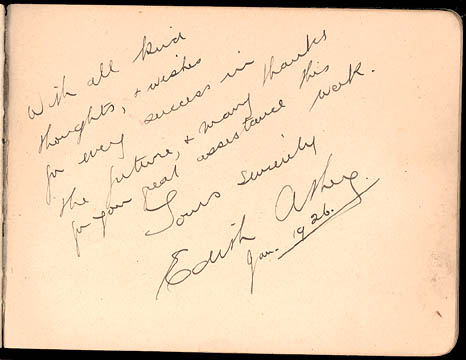 With all kind
thoughts, & wishes
for every success in
the future, & many thanks
for your great assistance this
work.
Yours sincerely
Edith
Jan. 1926.